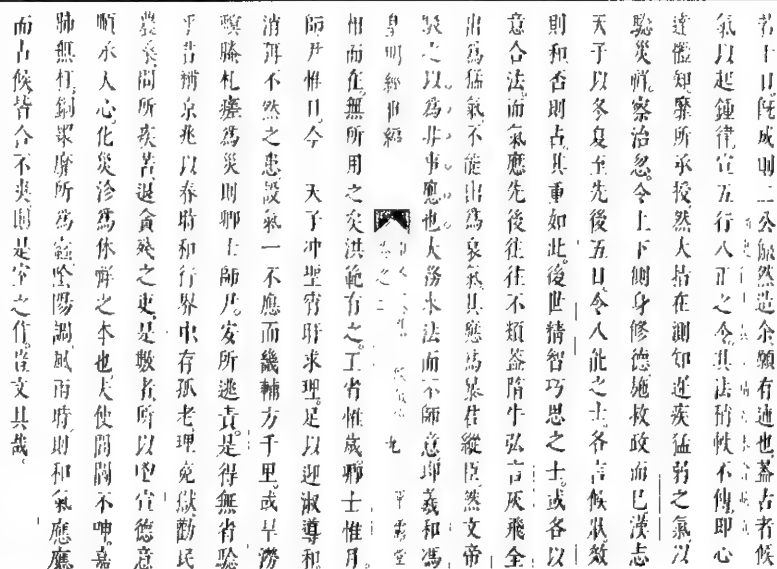 若干日既成則二公㒒然造余願有述也蓋古者候
氣以起鍾律宣五行八正之令其法稍軼不傳即心
達體知靡所承授然大指在測知遲疾猛弱之氣以
驗災祥察治忽令上下側身修德施救政而已漢志
天子以冬夏至先後五日令八能之士各言候狀效
則和否則占其重如此後世精智巧思之士或各以
意合法而氣應先後往往不類蓋隋牛弘言灰飛全
出為猛氣不能出為衰氣其應為暴君縱臣然文帝
駁之以為非事應也夫務求法而不師意即羲和馮
皇明經世編
卷之二
九
平露堂
相而在無所用之矣洪範有之王省惟歲卿士惟月
師尹惟日今 天子冲聖宵旰求理足以迎淑導和
消弭不然之患設氣一不應而畿輔方千里或旱澇
螟螣札瘥為災則卿士師尹安所逃責是得無省驗
乎昔補京兆以春時和行界中存孤老理冤獄勸民
農桑問所疾苦退貪殘之吏是數者所以宣德意
順承人心化災沴為休祥之本也夫使閭閻不呻嘉
肺無枉銅墨靡所為蠧陰陽調風雨時則和氣應應
而占候皆合不爽則是室之作豈文具哉